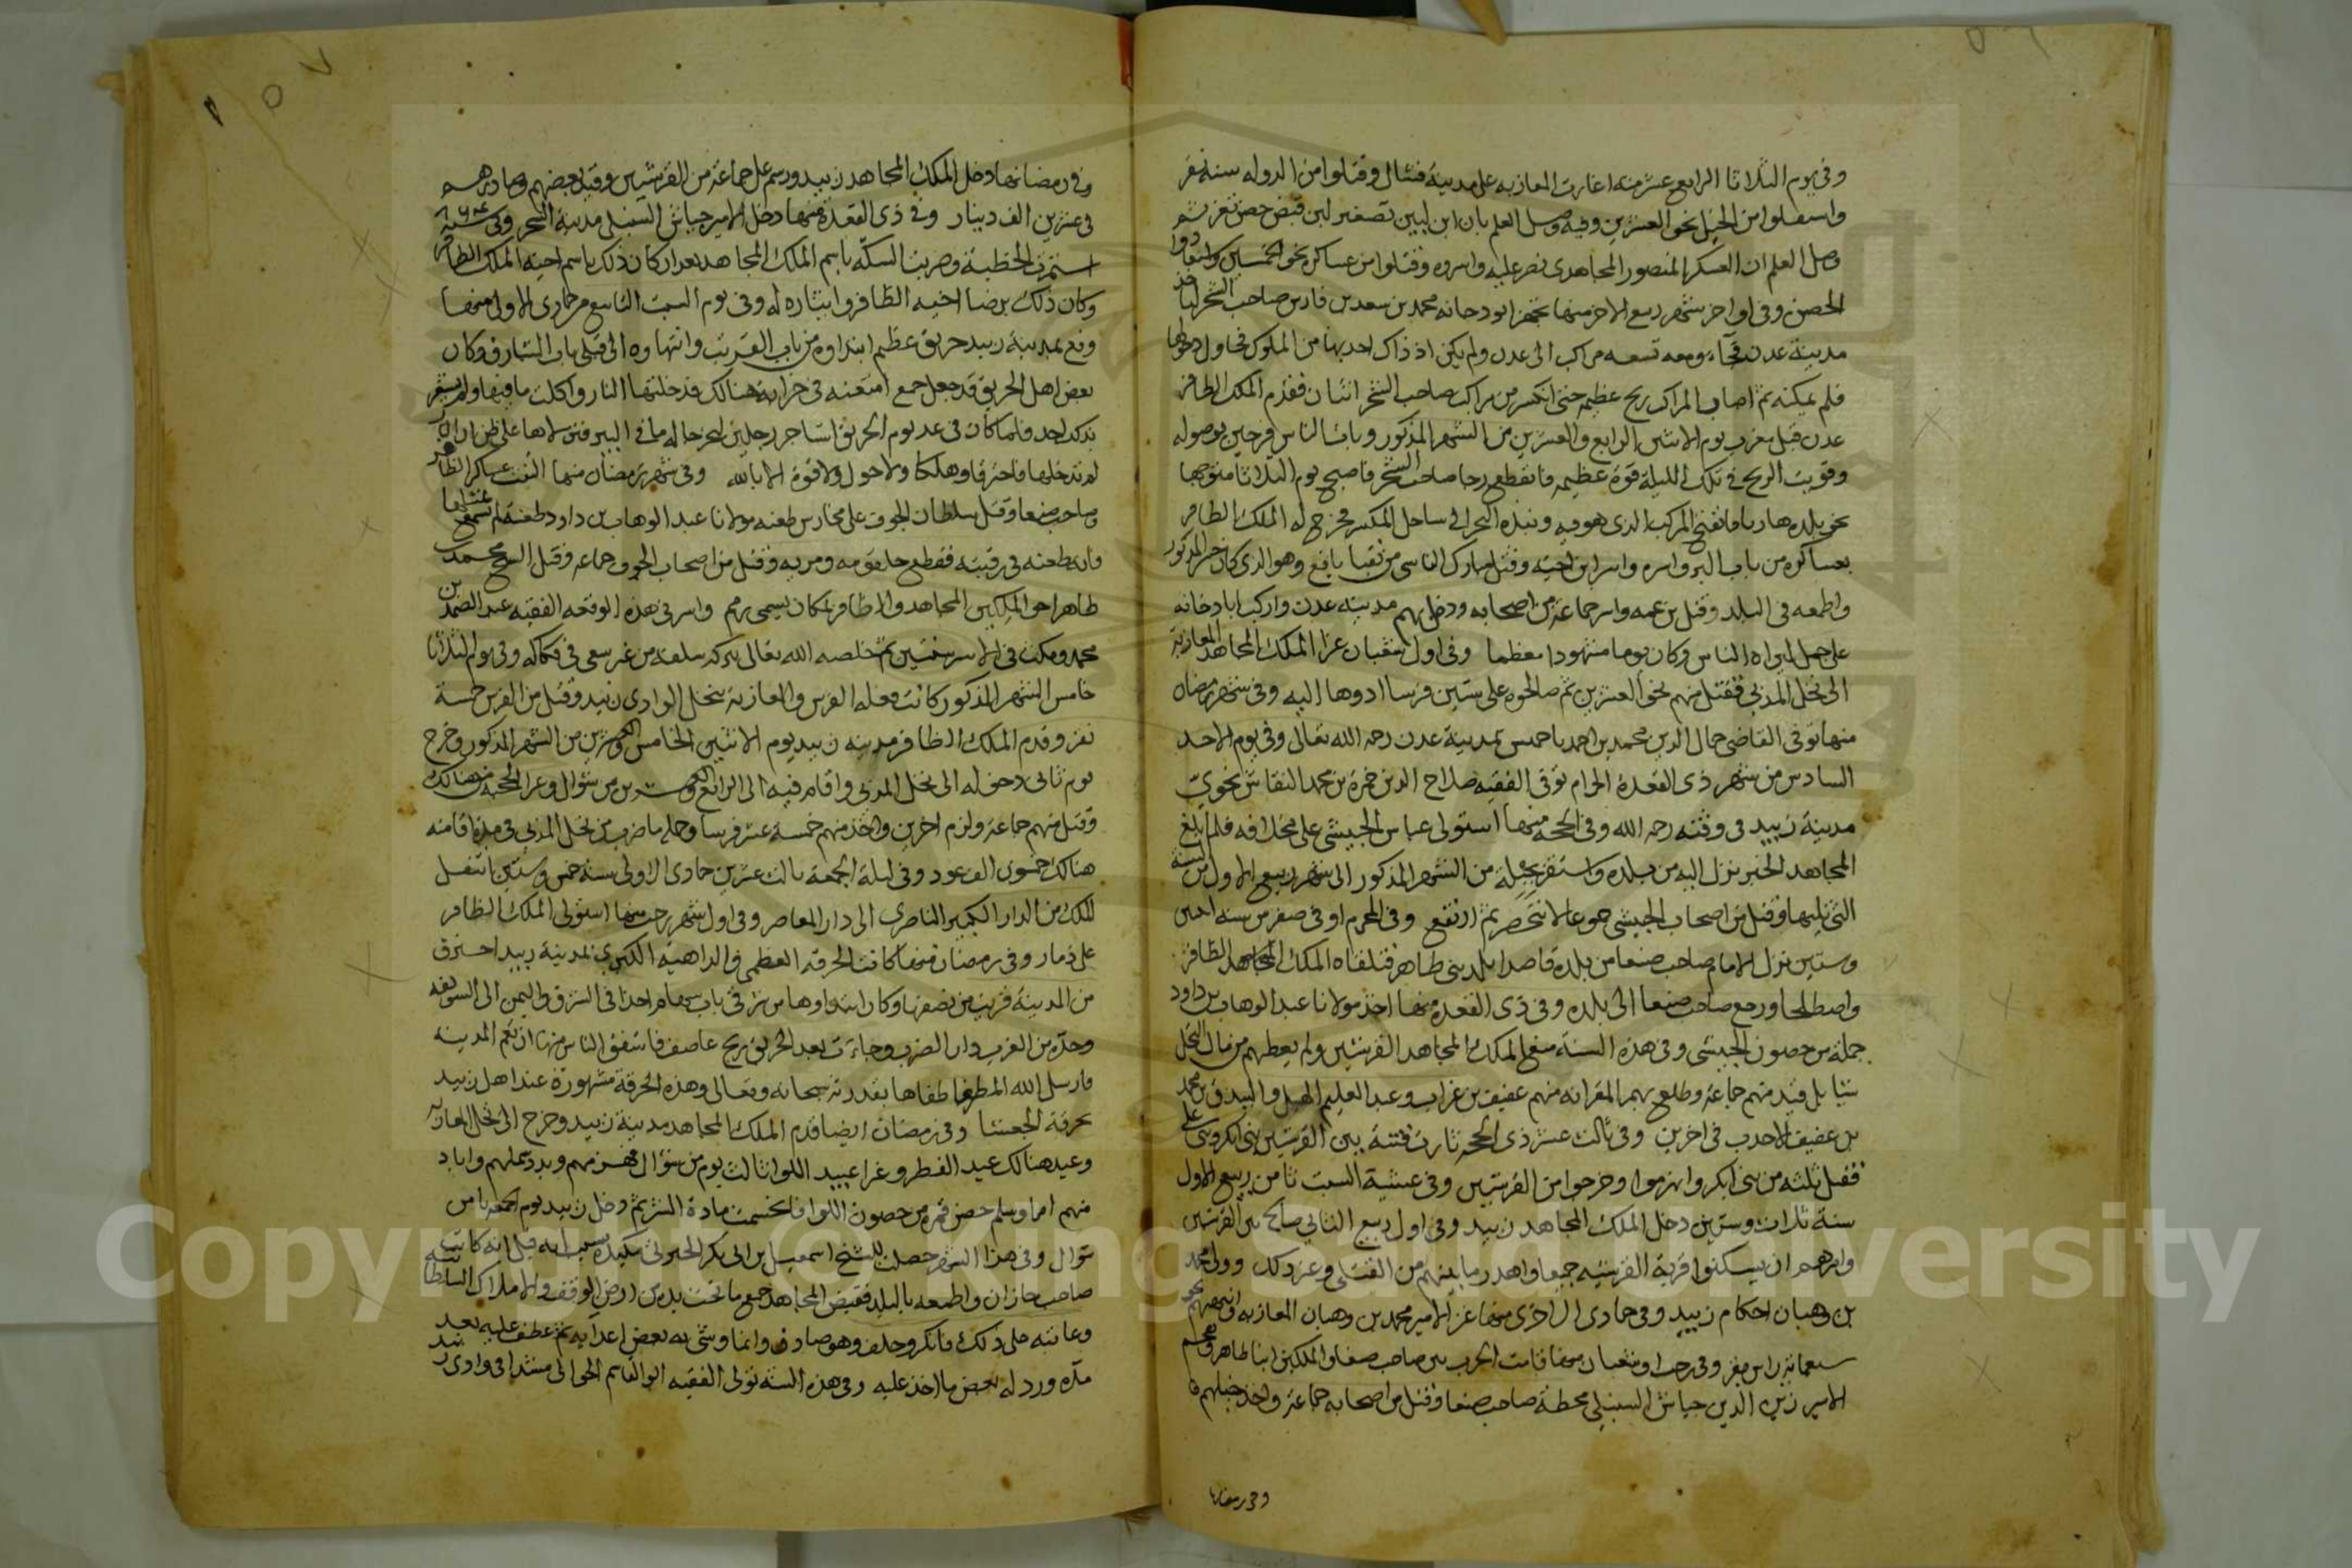 وفي يوم الثلاثا الرابع عشر منه اغارت المعازبه على مدينة فشال وقتلوا من الدوله ستة نفر
واستقلوا من الخيل نحو العشرين وفيه وصل العلم بان ابن ليين تصغير لبن قبض حصن تعز ثم
وصل العلم ان العسكر المنصور المجاهدي نصر عليه واسروه وقتلوا من عساكره نحو الخمسين واستعادوا
الحصن وفي اواخر شهر ربيع الاخر منها تجهز ابو دجانه محمد بن سعد بن فارس صاحب الشحر لياخذ
مدينة عدن فجاء ومعه تسعه مراكب الى عدن ولم يكن اذ ذاك احد بها من الملوك فحاول دخولها
فلم يمكنه ثم اصاب المراكب ريح عظيمه حتى انكسر من مراكب صاحب الشحر اثنان فقدم الملك الظافر
عدن قبل مغرب يوم الاثنين الرابع والعشرين من الشهر المذكور وبات الناس فرحين بوصوله
وقويت الريح في تلك الليلة قوة عظيمه فانقطع رجا صاحب الشحر فاصبح يوم الثلاثا متوجها
نحو بلده هاربا فانفتح المركب الذي هو فيه ونبذه البحر الى ساحل المكسر فخرج له الملك الظافر
بعساكره من باب البر واسره واسر ابن اخيه وقتل مبارك الناسي من نقبا يافع وهو الذي كان المذكور
واطمعه في البلد وقتل بن عمه واسر جماعة من اصحابه ودخل بهم مدينه عدن واركب ابا دجانه
على جمل ليراه الناس وكان يوما مشهودا معظما وفي اول شعبان غزا الملك المجاهد المعازبة
الى نخل المدبي فقتل منهم نحو العشرين ثم صالحوه على ستين فرسا ادوها اليه وفي شهر رمضان
منها توفي القاضي جمال الدين محمد بن احمد باحميش بمدينة عدن رحمه الله تعالى وفي يوم الاحد
السادس من شهر ذي القعدة الحرام توفي الفقيه صلاح الدين حمزة بن محمد النقاش نحوي
مدينة زبيد في وقته رحمه الله وفي الحجه منها استولى عباس الحبيشي على مخلافه فلما بلغ
المجاهد الخبر نزل اليه من بلده واستقر بجبله من الشهر المذكور الى شهر ربيع الاول من السنة
التي تليها وقتل من اصحاب الحبيشي جموعا لا تنحصر ثم ارتفع وفي المحرم او في صفر من سنه اثنين
وستين نزل الامام صاحب صنعا من بلده قاصدا بلد بني طاهر فتلقاه الملك المجاهد والظافر
واصطلحا ورجع صاحب صنعا الى بلده وفي ذي القعده منها اخذ مولانا عبد الوهاب بن داود
جملة من حصون الحبيشي وفي هذه السنة منع الملك المجاهد القرشيين ولم يعطهم من مال النخل
شيا بل قيد منهم جماعة وطلع بهم المقرانه منهم عفيف بن غراب وعبد العليم المهل والصديق بن محمد
بن عفيف الاحدب في اخرين وفي ثالث عشر ذي الحجه ثارت فتنة بين القرشيين بني ابكر وبني علي
فقتل ثلثه من بني ابكر وانهزموا وخرجوا من القرشيين وفي عشية السبت ثامن ربيع الاول
سنة ثلاث وستين دخل الملك المجاهد زبيد وفي اول ربيع الثاني صالح بين القرشيين
وامرهم ان يسكنوا قرية القرشيه جميعا واهدر ما بينهم من القتلى وغير ذلك وولى محمد
بن وهبان احكام زبيد وفي جمادى الاخرى منها غزا الامير محمد بن وهبان المعازبه وانتهب نحو
سبعمائة راس بقر وفي رجب او شعبان منها قامت الحرب بين صاحب صنعا والملكين ابنا طاهر وهجم
الامير زين الدين جياش السنبلي محطة صاحب صنعا وقتل من اصحابه جماعة واخذ خيلهم
وفي رمضانها
وفي رمضانها دخل الملك المجاهد زبيد ورسم على جماعة من القرشيين وقيد بعضهم وصادرهم
في عشرين الف دينار وفي ذي القعدة منها دخل الامير جياش السنبلي مدينة الشحر وفي سنة ٨٦٤
استمرت الخطبة وضربت السكة باسم الملك المجاهد بعد ان كان ذلك باسم اخيه الملك الظافر
وكان ذلك برضا اخيه الظافر وايثاره له وفي يوم السبت التاسع من جمادى الاولى منها
وقع بمدينة زبيد حريق عظيم ابتداوه من باب القرتب وانتهاوه الى قبلي باب الشبارق وكان
بعض اهل الحريق قد جعل جمع امتعته في خرابة هنالك فدخلتها النار واكلت ما فيها ولم يشعر
بذلك احد فلما كان في غد يوم الحريق استاجر رجلين ليخرجا له ما في البير فنزلاها على ظن ان النار
لم تدخلها فاحترقا وهلكا ولا حول ولا قوة الا بالله وفي شهر رمضان منها التقت عساكر الظافر
وصاحب صنعا وقتل سلطان الجوف علي مخارس طعنه مولانا عبد الوهاب بن داود طعنة لم يسمع بمثلها
فانه طعنه في رقبته فقطع حلقومه ومريه وقتل من اصحاب الجوف جماعه وقتل الشيخ محمد
طاهر اخو الملكين المجاهد والظافر بمكان يسمى رمم واسر في هذه الوقعه الفقيه عبد الصمد بن
محمد ومكث في الاسر سنتين ثم خلصه الله تعالى ببركة سلفه من غير سعي في فكاكه وفي يوم الثلاثا
خامس الشهر المذكور كانت وقعة القرش والمعازبة بنخل الوادي زبيد وقتل من القرش خمسة
نفر وقدم الملك الظافر مدينه زبيد يوم الاثنين الخامس والعشرين من الشهر المذكور وخرج
يوم ثاني دخوله الى نخل المدبي واقام فيه الى الرابع والعشرين من شوال وغزا المحجبة من هنالك
وقتل منهم جماعة ولزم اخرين واخذ منهم خمسة عشر فرسا وجملة ما ضرب من نخل المدبي في مدة اقامته
هنالك خمسون الف عود وفي ليلة الجمعة ثالث عشرين جمادى الاولى سنة خمس وستين انتقل
الملك من الدار الكبير الناصري الى دار المعاصر وفي اول شهر رجب منها استولى الملك الظافر
على ذمار وفي رمضان منها كانت الحرقه العظمى والداهية الكبرى بمدينة زبيد احترق
من المدينة قريب من نصفها وكان ابتداوها من شرقي باب سهام اخذا في الشرق واليمن الى السويقه
وحده من الغرب دار الضرب وجاءت بعد الحريق ريح عاصف فاشفق الناس منها ان تعم المدينه
فارسل الله المطر فاطفاها بقدرته سبحانه وتعالى وهذه الحرقة مشهورة عند اهل زبيد
بحرقة الجعشا وفي رمضان ايضا قدم الملك المجاهد مدينة زبيد وخرج الى نخل المعازبه
وعيد هنالك عيد الفطر وغزا عبيد اللوا ثالث يوم من شوال فهزمهم وبدد شملهم واباد
منهم امما وسلم حصن قمه من حصون اللوا فانحسمت مادة الشر ثم دخل زبيد يوم الجمعه ثامن
شوال وفي هذا الشهر حصلت للشيخ اسمعيل بن ابي بكر الجبرتي مكيدة بسبب انه قيل انه كاتب
صاحب جازان واطمعه بالبلد فقبض المجاهد جميع ما تحت يده من ارض الوقف والاملاك السلطانيه
وعاتبه على ذلك فانكر وحلف وهو صادق وانما وشى به بعض اعدايه ثم عطف عليه بعد
مدة ورد له بعض ما اخذ عليه وفي هذه السنة تولى الفقيه ابو القاسم الحوالي مشدا في وادي زبيد